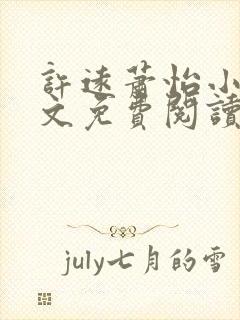 許遠蕭怡小
文免費閱讀
july七月的雪